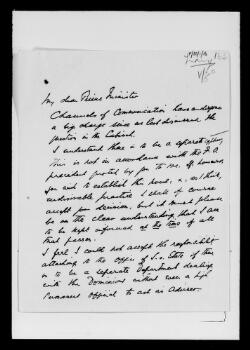 My dear Prime Minister
Channels of Communication have undergone
a big change since we last discussed the
question in the Cabinet.
I understand there is to be a separate
This is not in accordance with the
precedent quoted by you to me. If however
you and to establish the new, & as I think,
undesirable practice I shall of course
accept your decision, but it must please
be on the clear understanding that I am
to be kept informed at the time of all
that passes.
I feel I could not accept the responsibility
attaching to the office of S. of State if there
is to be a separate Department dealing
with the Dominions without even a high
Permanent official to act as Adviser.